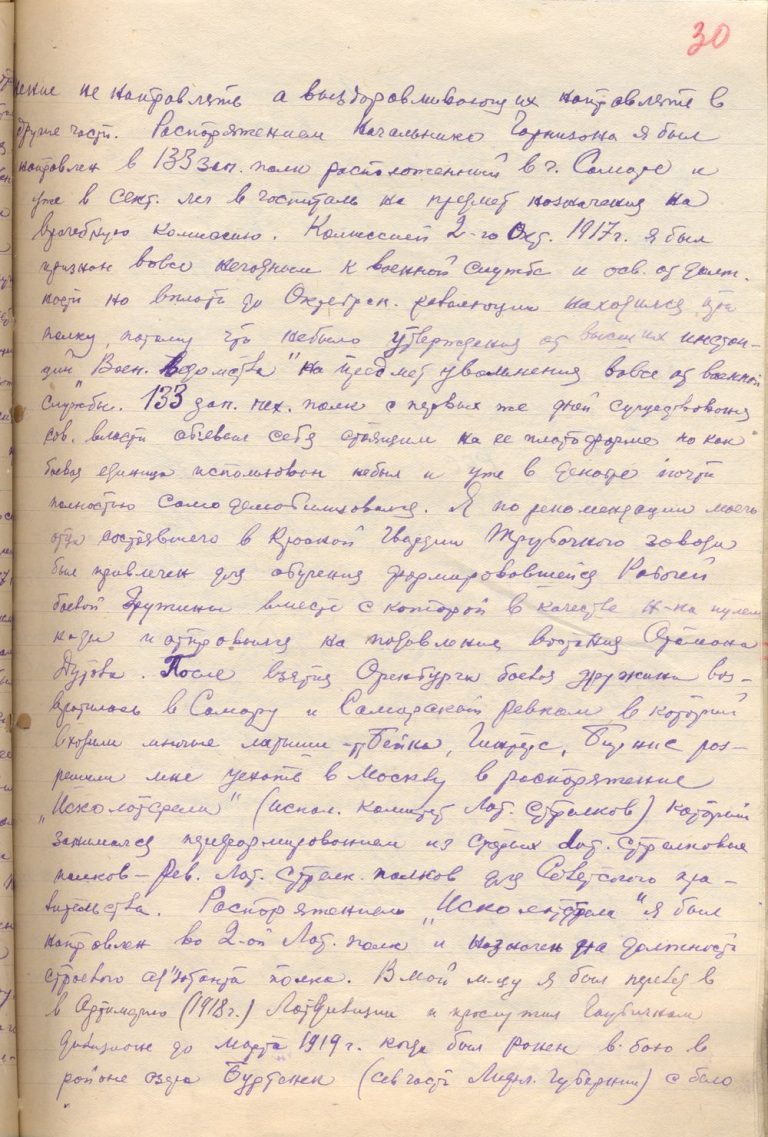 30
нение не направлять а выздоравливающих направлять в
другие части. Распоряжением Начальника Гарнизона я был
направлен в 133 зап. полк расположенный в г. Самаре и
уже в сент. лег в госпиталь на предмет назначения на
врачебную комиссию. Комиссией 2-го Окт. 1917г. я был
признан вовсе негодным к военной службе и осв. от долж-
ности но вплоть до Октябрьск. революции находился при
полку, потому что небыло утверждения от высших инстан-
ций "Воен. Ведомства" на предмет увольнения вовсе от военной
службы. 133 зап. пех. полк с первых же дней существования
сов. власти объявил себя стоящим на ее платформе но как
боевая единица использован небыл и уже в декабре почти
полностью само демобилизовался. Я по рекомендации моего
отца состоявшего в Красной Гвардии Трубочного завода
был привлечен для обучения формировавшейся Рабочей
боевой Дружины вместе с которой в качестве н-ка пулем.
и отправился на подавление востания Атамана
Дутова. После взятия Оренбурга боевая дружина воз-
вратилась в Самару и Самарский ревком, в который
входили многие латыши - раз-
решили мне уехать в Москву в распоряжение
„Исколотстрела" (испол. комитет Лат. стрелков) который
занимался переформированием из старых Лат. стрелковых
полков - Рев. Лат. стрелк. полков для Советского пра-
вительства. Распоряжением „Исколотстрела" я был
направлен во 2-ой Лат. полк и назначен на должность
строевого ад"ютанта полка. В мой мцу я был перевед в
в Артиллерию (1918г.) ЛатДивизии и прослужил Гаубичном
дивизионе до Марта 1919г. когда был ранен в бою в
районе озера Буртнек (сев часть Лифл. Губернии) с бело